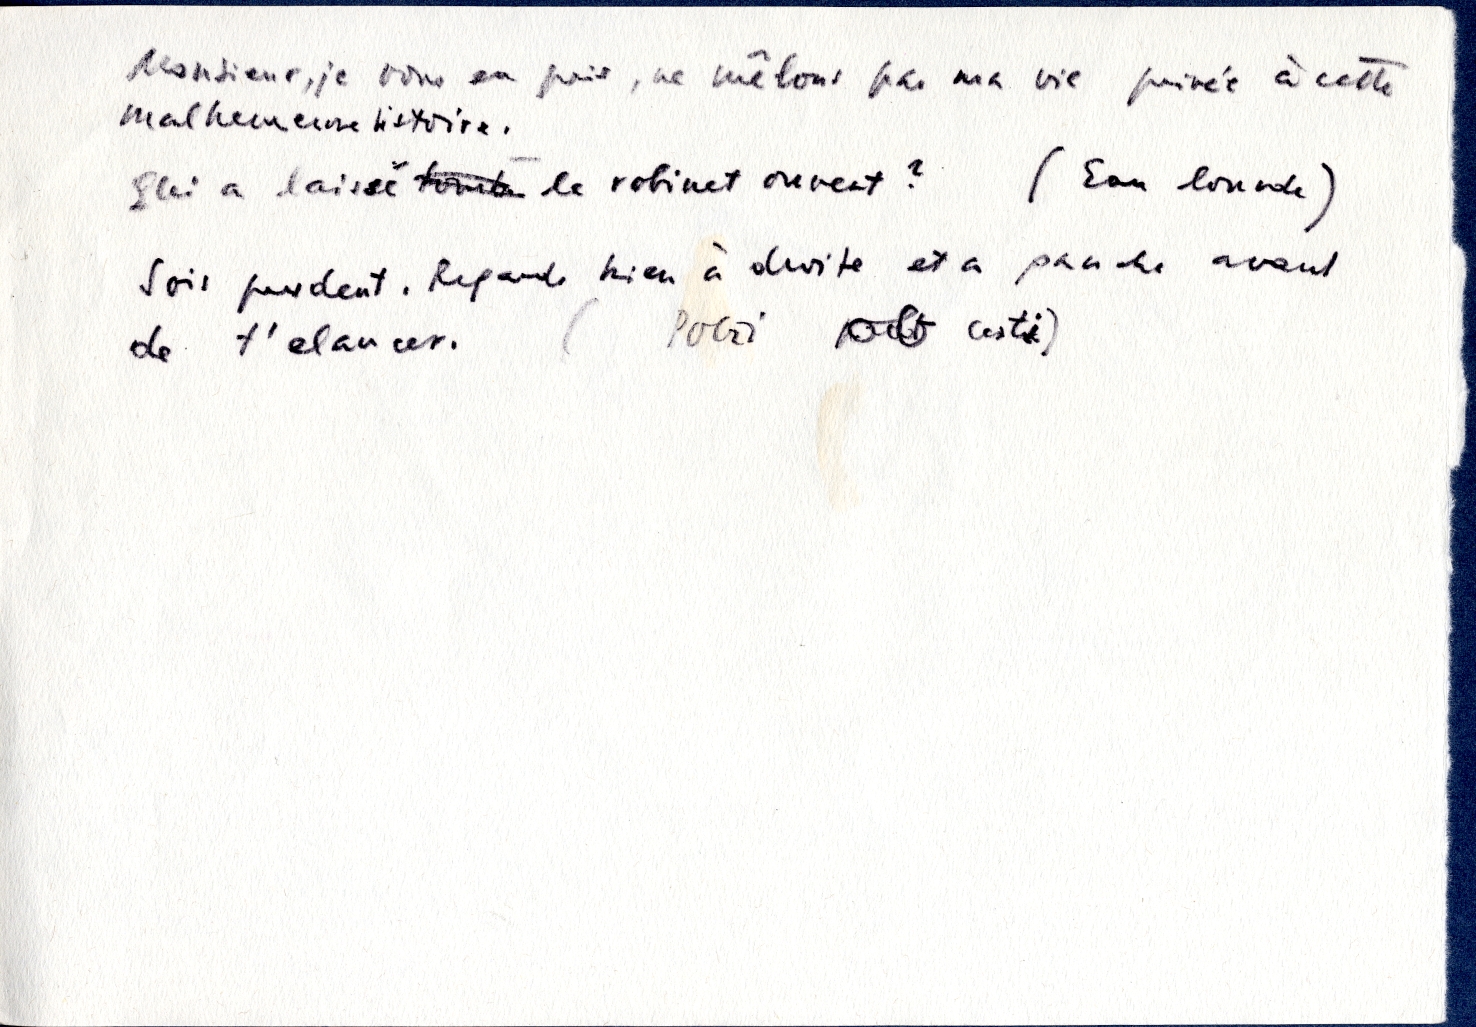 Monsieur, je vous en prie, ne mêlons pas ma vie privée à cette
malheureuse histoire.
Qui a laissé le robinet ouvert ? (Eau lourde)
Sois prudent. Regarde bien à droite et a gauche avant
de t'elancer. (